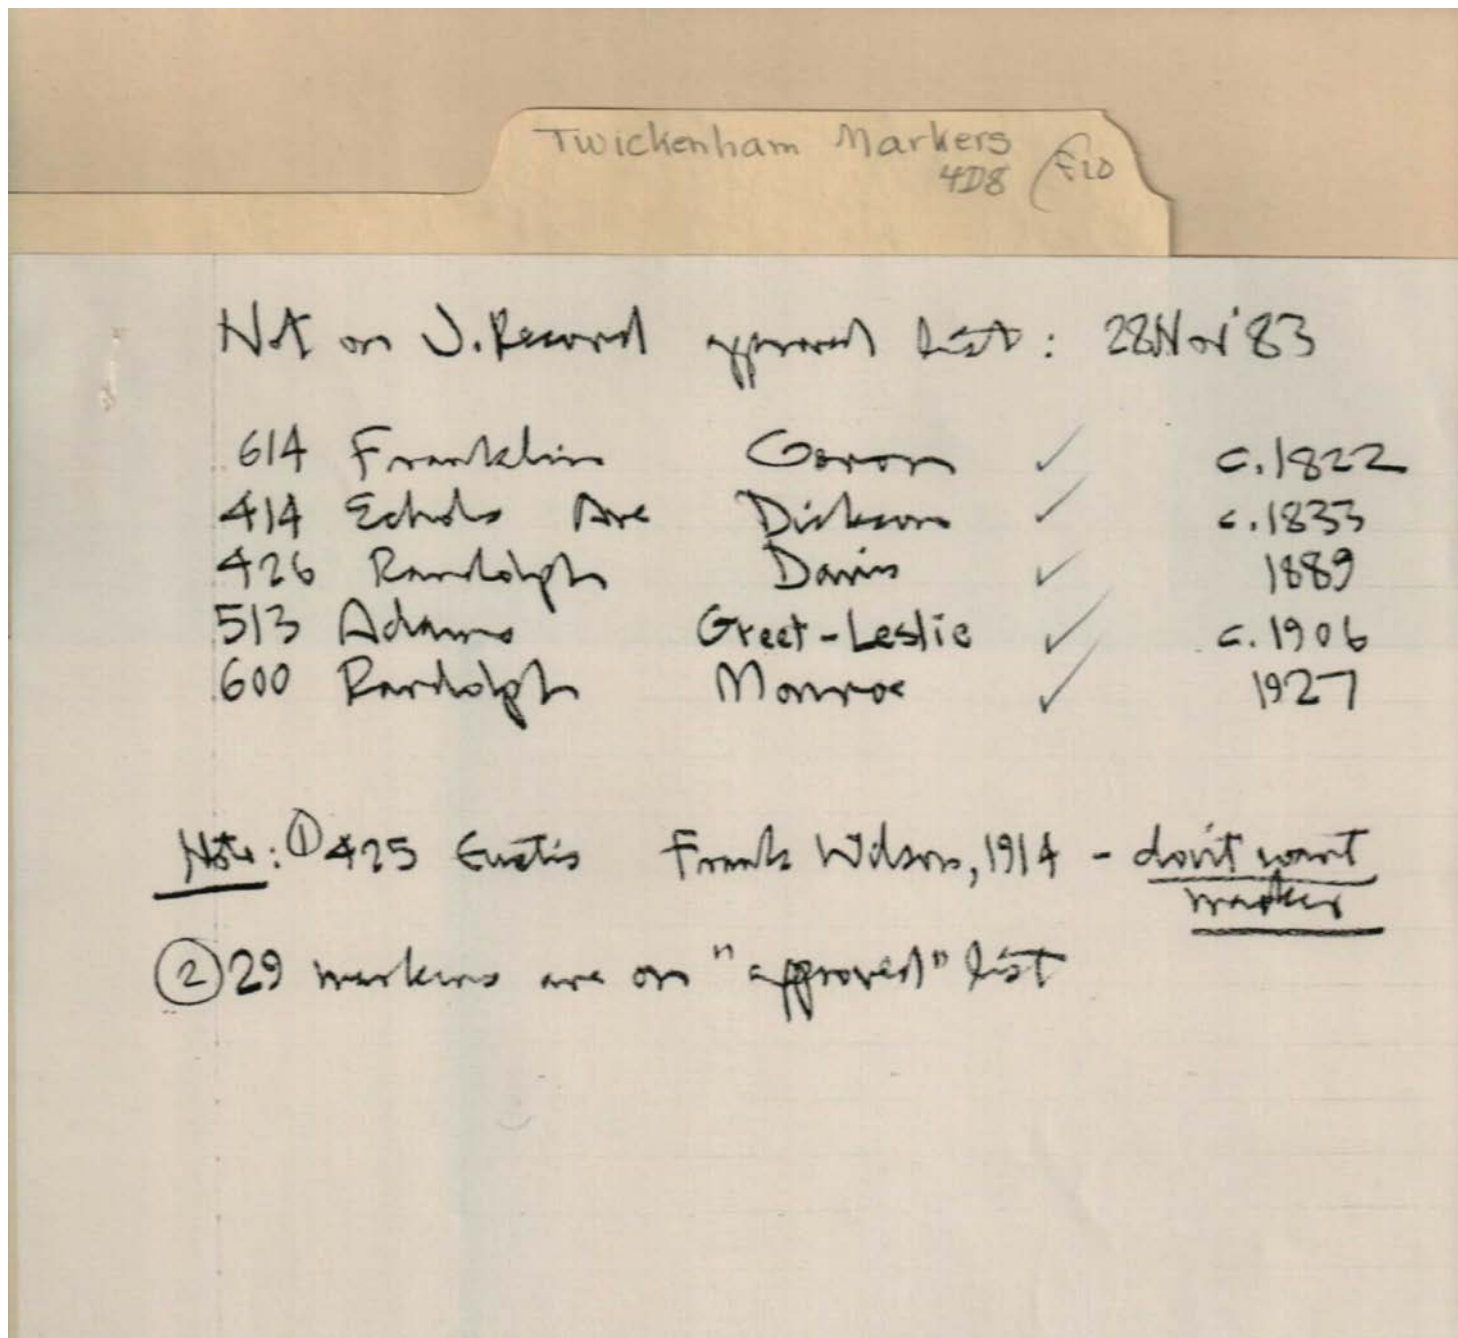 Twickenham Markers
4D8 F20
Not on J. Record approved list: 28 Nov '83
614 Franklin Caron ✓ c. 1822
414 Echols Ave Dickson ✓ c. 1833
426 Randolph Davis ✓ 1889
513 Adams Greet-Leslie ✓ c. 1906
600 Randolph Monroe ✓ 1927
Note: ① 425 Eustis Frank Wilson, 1914 - don't want
marker
② 29 markers are on "approved" list